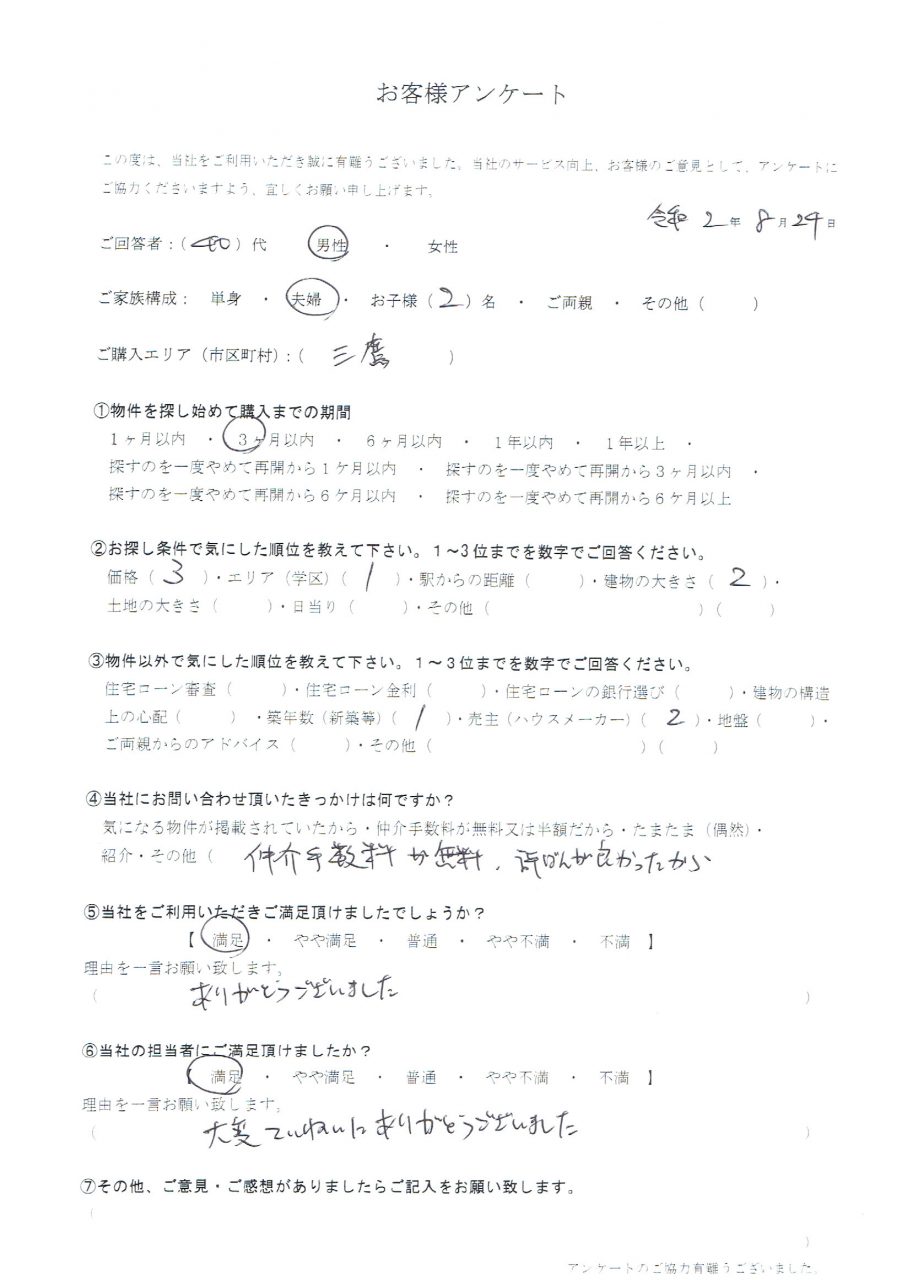 お客様アンケート
この度は、当社をご利用いただき誠に有難うございました。当社のサービス向上、お客様のご意見として、アンケートに
ご協力くださいますよう、宜しくお願い申し上げます。
令和 2 年 8 月 29 日
ご回答者：（ 40 ）代 男性 ・ 女性
ご家族構成： 単身 ・ 夫婦 ・ お子様（ 2 ）名 ・ ご両親 ・ その他（ ）
ご購入エリア（市区町村）：（ 三鷹 ）
①物件を探し始めて購入までの期間
１ヶ月以内 ・ ３ヶ月以内 ・ ６ヶ月以内 ・ １年以内 ・ １年以上 ・
探すのを一度やめて再開から１ケ月以内 ・ 探すのを一度やめて再開から３ヶ月以内 ・
探すのを一度やめて再開から６ケ月以内 ・ 探すのを一度やめて再開から６ケ月以上
②お探し条件で気にした順位を教えて下さい。１～３位までを数字でご回答ください。
価格（ 3 ）・エリア（学区）（ 1 ）・駅からの距離（ ）・建物の大きさ（ 2 ）・
土地の大きさ（ ）・日当り（ ）・その他（ ）（ ）
③物件以外で気にした順位を教えて下さい。１～３位までを数字でご回答ください。
住宅ローン審査（ ）・住宅ローン金利（ ）・住宅ローンの銀行選び（ ）・建物の構造
上の心配（ ）・築年数（新築等）（ 1 ）・売主（ハウスメーカー）（ 2 ）・地盤（ ）・
ご両親からのアドバイス（ ）・その他（ ）（ ）
④当社にお問い合わせ頂いたきっかけは何ですか？
気になる物件が掲載されていたから・仲介手数料が無料又は半額だから・たまたま（偶然）・
紹介・その他（ 仲介手数料が無料、評ばんが良かったから
⑤当社をご利用いただきご満足頂けましたでしょうか？
【 満足 ・ やや満足 ・ 普通 ・ やや不満 ・ 不満 】
理由を一言お願い致します。
（ ありがとうございました ）
⑥当社の担当者にご満足頂けましたか？
【 満足 ・ やや満足 ・ 普通 ・ やや不満 ・ 不満 】
理由を一言お願い致します。
（ 大変ていねいにありがとうございました ）
⑦その他、ご意見・ご感想がありましたらご記入をお願い致します。
（
）
アンケートのご協力有難うございました。